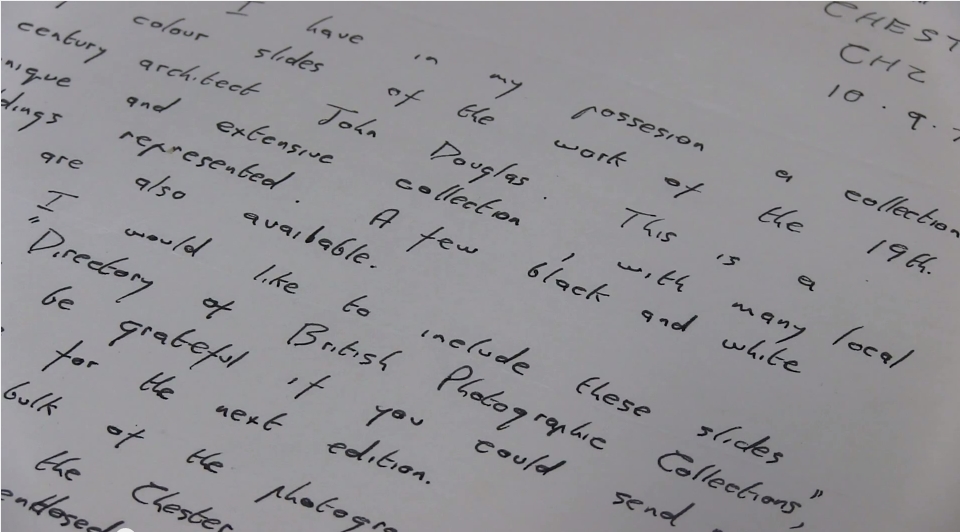 CHEST
CH2
10.9.
I have in my possesion a collection
colour slides of the work of the 19th.
century architect John Douglas. This is a
nique and extensive collection, with many local
dings represented. A few black and white
are also available.
I would like to include these slides
"Directory of British Photographic Collections,"
be grateful if you could send
for the next edition.
bulk of the photogra
the Chester